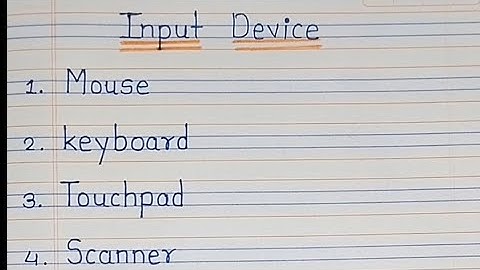 Input Device
1. Mouse
2. keyboard
3. Touchpad
4. Scanner